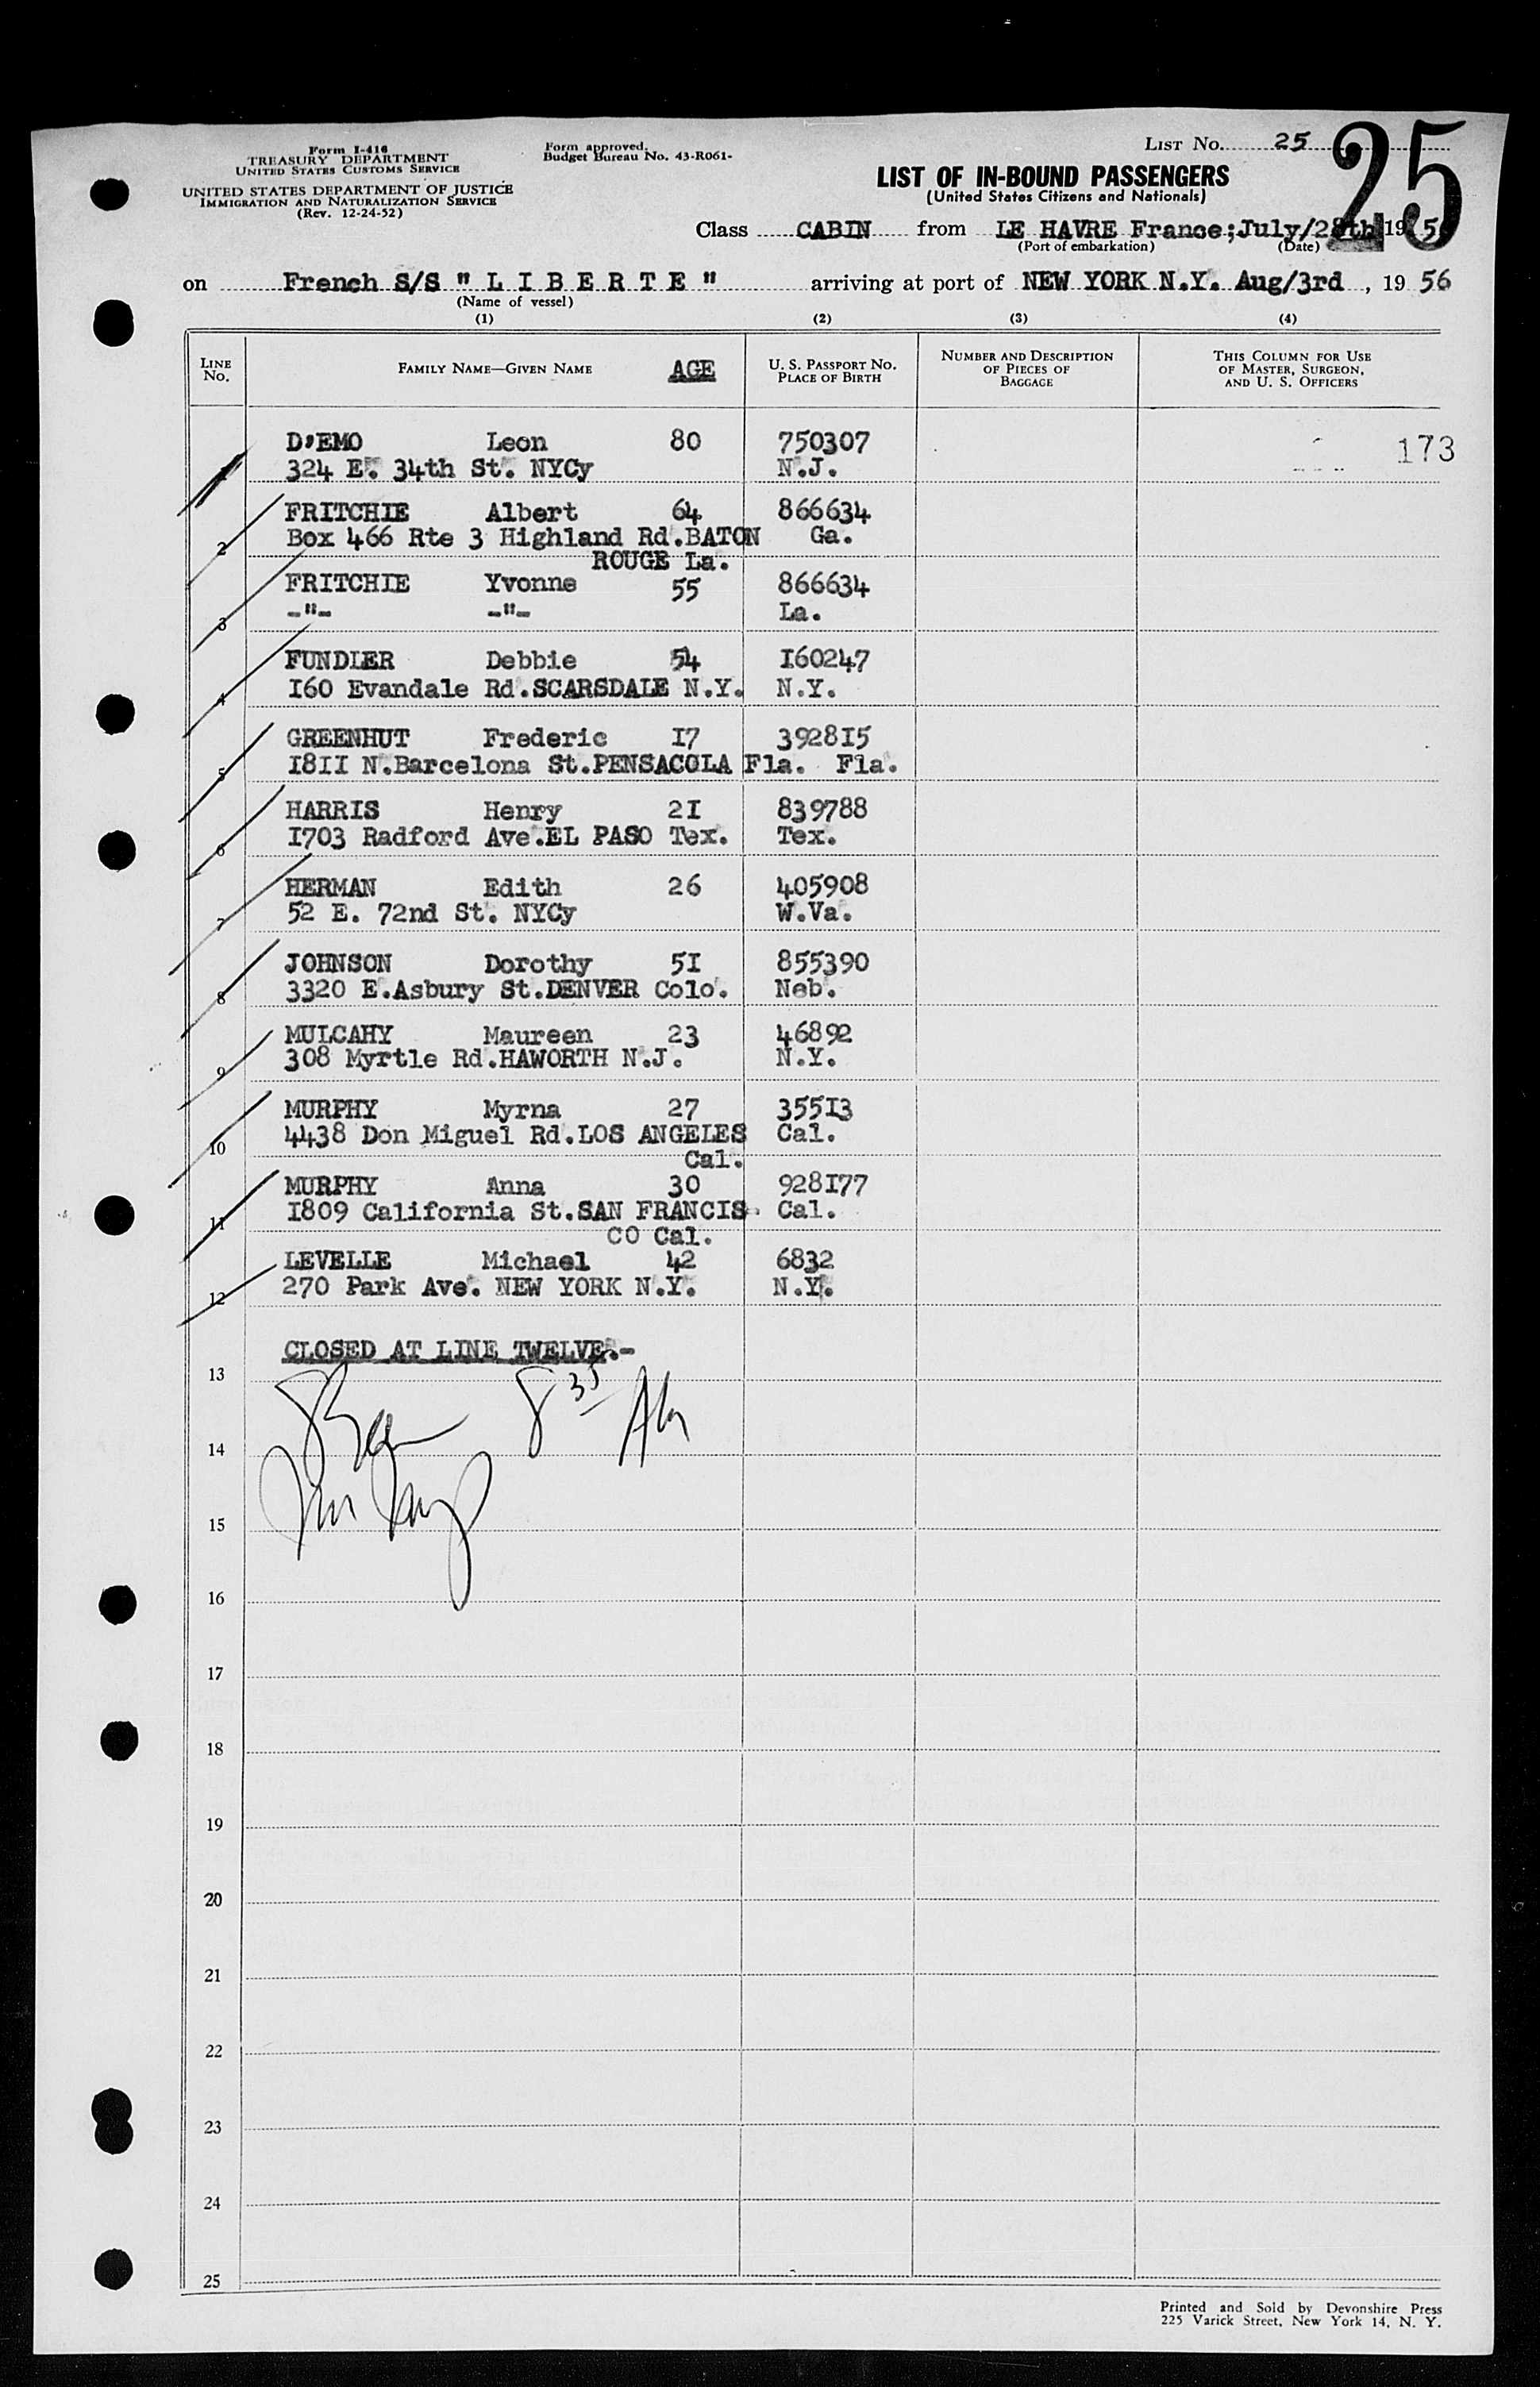 Form I-416
TREASURY DEPARTMENT
UNITED STATES CUSTOMS SERVICE
UNITED STATES DEPARTMENT OF JUSTICE
IMMIGRATION AND NATURALIZATION SERVICE
(Rev. 12-24-52)
Form approved.
Budget Bureau No. 43-R061-
LIST No. 25
25
LIST OF IN-BOUND PASSENGERS
(United States Citizens and Nationals)
Class CABIN from LE HAVRE France;July/28th 195
(Port of embarkation) (Date)
on French S/S " L I B E R T E " arriving at port of NEW YORK N.Y. Aug/3rd , 19 56
(Name of vessel)
(1) (2) (3) (4)
LINE No. FAMILY NAME—GIVEN NAME AGE U. S. PASSPORT No. PLACE OF BIRTH NUMBER AND DESCRIPTION OF PIECES OF BAGGAGE THIS COLUMN FOR USE OF MASTER, SURGEON, AND U. S. OFFICERS
D'EMO Leon 80 750307 173
1 324 E. 34th St. NYCy N.J.
FRITCHIE Albert 64 866634
2 Box 466 Rte 3 Highland Rd.BATON Ga.
ROUGE La.
FRITCHIE Yvonne 55 866634
3 -"- -"- La.
FUNDLER Debbie 54 I60247
4 I60 Evandale Rd.SCARSDALE N.Y. N.Y.
GREENHUT Frederic I7 3928I5
5 I8II N.Barcelona St.PENSACOLA Fla. Fla.
HARRIS Henry 2I 839788
6 I703 Radford Ave.EL PASO Tex. Tex.
HERMAN Edith 26 405908
7 52 E. 72nd St. NYCy W.Va.
JOHNSON Dorothy 5I 855390
8 3320 E.Asbury St.DENVER Colo. Neb.
MULCAHY Maureen 23 46892
9 308 Myrtle Rd.HAWORTH N.J. N.Y.
MURPHY Myrna 27 355I3
10 4438 Don Miguel Rd.LOS ANGELES Cal.
Cal.
MURPHY Anna 30 928I77
11 I809 California St.SAN FRANCIS Cal.
CO Cal.
LEVELLE Michael 42 6832
12 270 Park Ave. NEW YORK N.Y. N.Y.
CLOSED AT LINE TWELVE.-
13
8 35 AM
14
15
16
17
18
19
20
21
22
23
24
25
Printed and Sold by Devonshire Press
225 Varick Street, New York 14, N. Y.